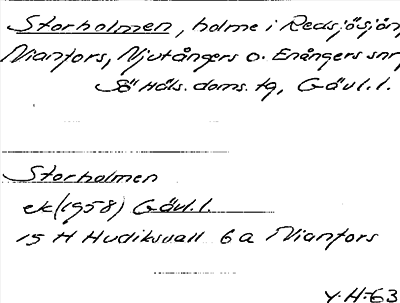 Storholmen, holme i Redsjösjön,
Nianfors, Njutångers o. Enångers snr
Sö Häls. doms. tg, Gävl. l.
Storholmen
ek (1958) Gävl. l.
15 H Hudiksvall 6 a Nianfors
Y. H-63